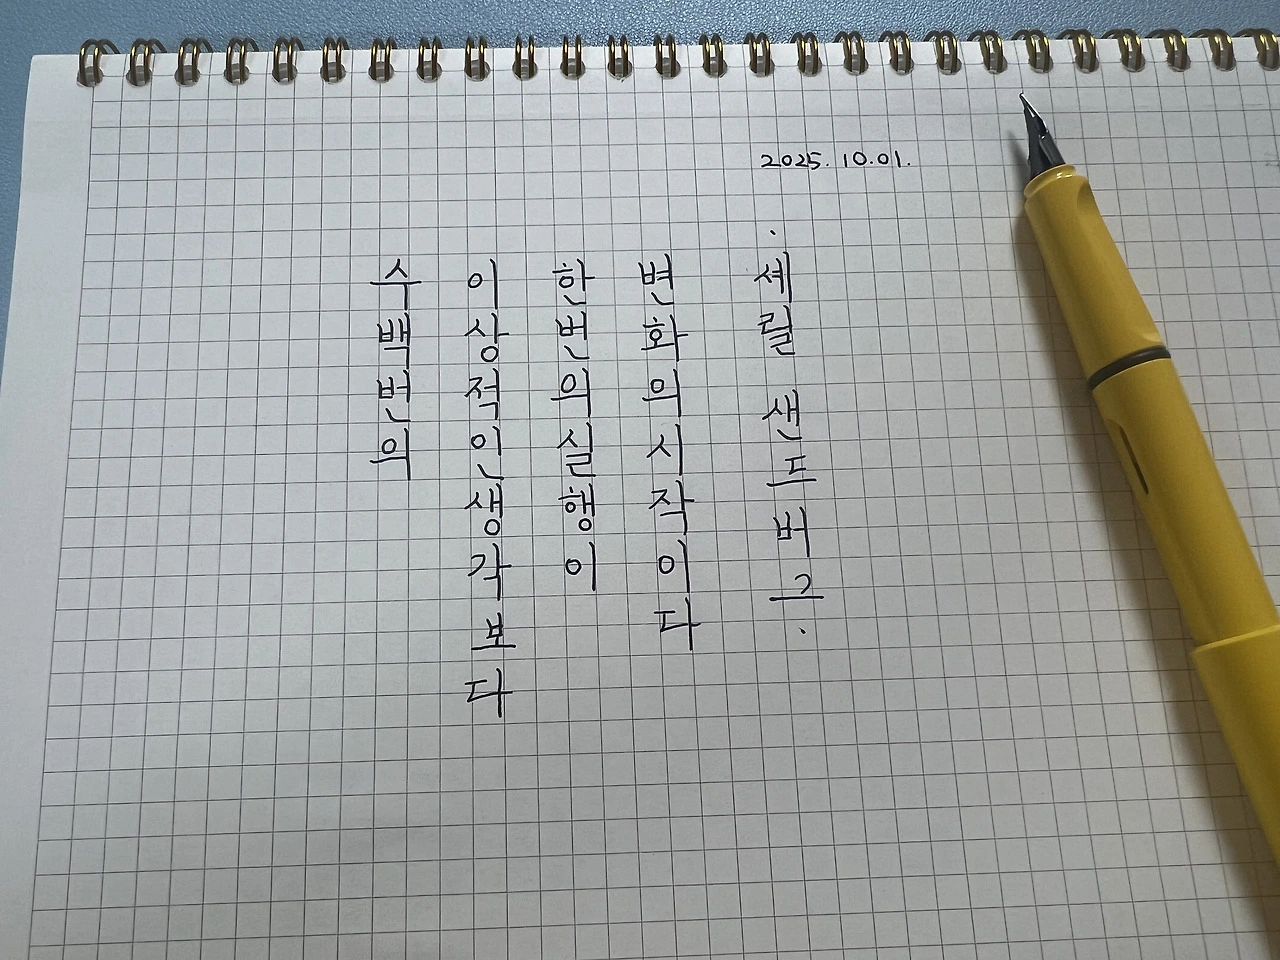 2025. 10. 01.
수백번의
이상적인생각보다
한번의실행이
변화의시작이다
· 셰릴 샌드버그 ·